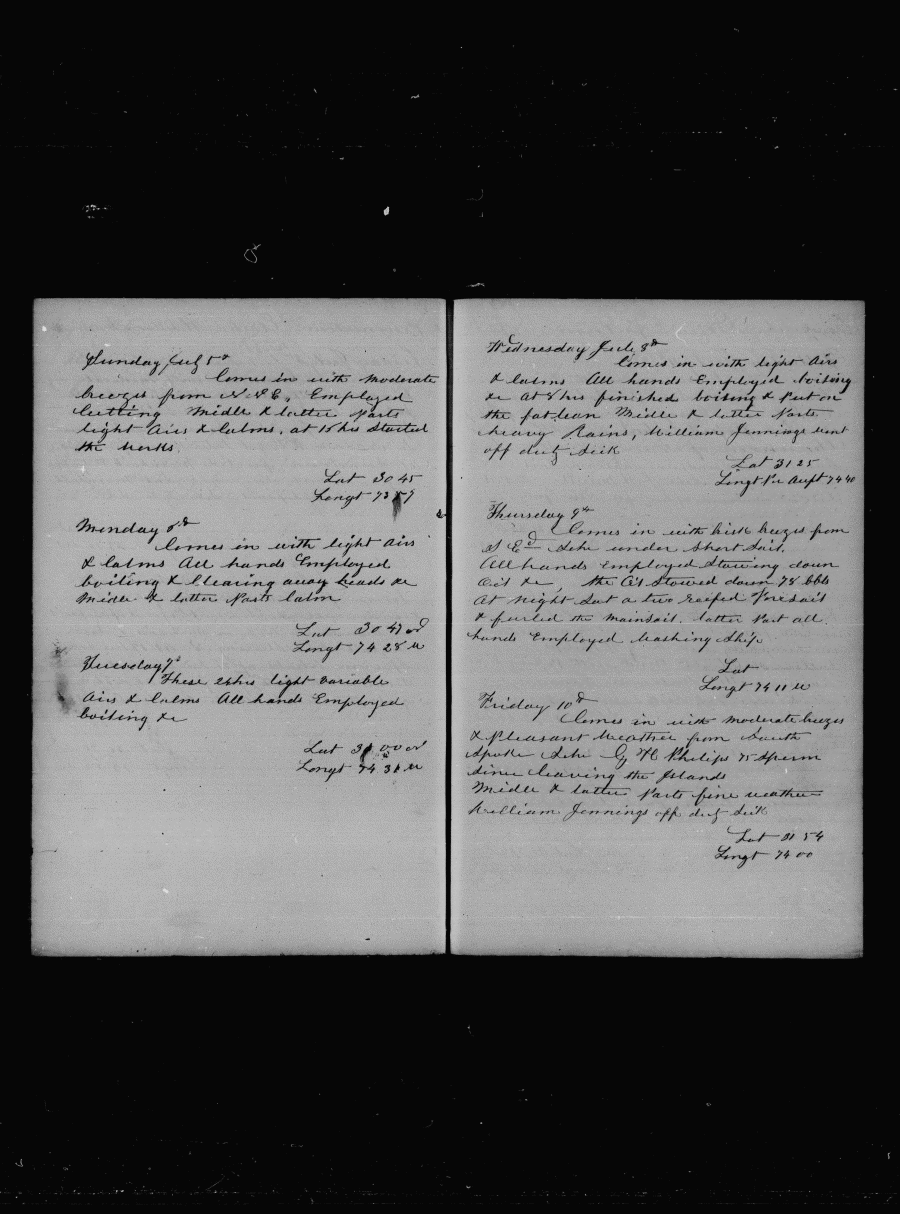 Sunday July 5th
Comes in with moderate
breezes from N.N.E. Employed
Cutting Middle & latter Parts
light Airs & Calms. at 10 hrs started
the works
Lat 30 45
Longt 73 57
Monday 6th
Comes in with light Airs
& Calms All hands Employed
boiling & Clearing away heads &c
Midle & latter Parts Calm
Lat 30 47
Longt 74 28 W
Tuesday 7th
These 24 hrs light variable
Airs & Calms All hands Employed
boiling &c
Lat 31 00
Longt 74 31 W
Wednesday July 8th
Comes in with light Airs
& Calms All hands Employed boiling
&c At 8 hrs finished boiling & Put on
the fat-lean Midle & latter Parts
heavy Rains, William Jennings went
off duty Sick
Lat 31 25
Longt Pr 74 40
Thursday 9th
Comes in with brisk breezes from
S Ed Schr under Short Sail.
All hands Employed Stowing down
Oil &c, the Oil Stowed down 78 bbls
At Night Sat a two reefed Foresail
& furled the mainsail. latter Part all
hands Employed Washing Ship
Lat
Longt 74 11 W
Friday 10th
Comes in with moderate breezes
& Pleasant Weather from South
Spoke Schr G H Philips 75 Sperm
Since leaving the Islands
Middle & latter Parts fine weather
William Jennings off duty Sick
Lat 31 54
Longt 74 00